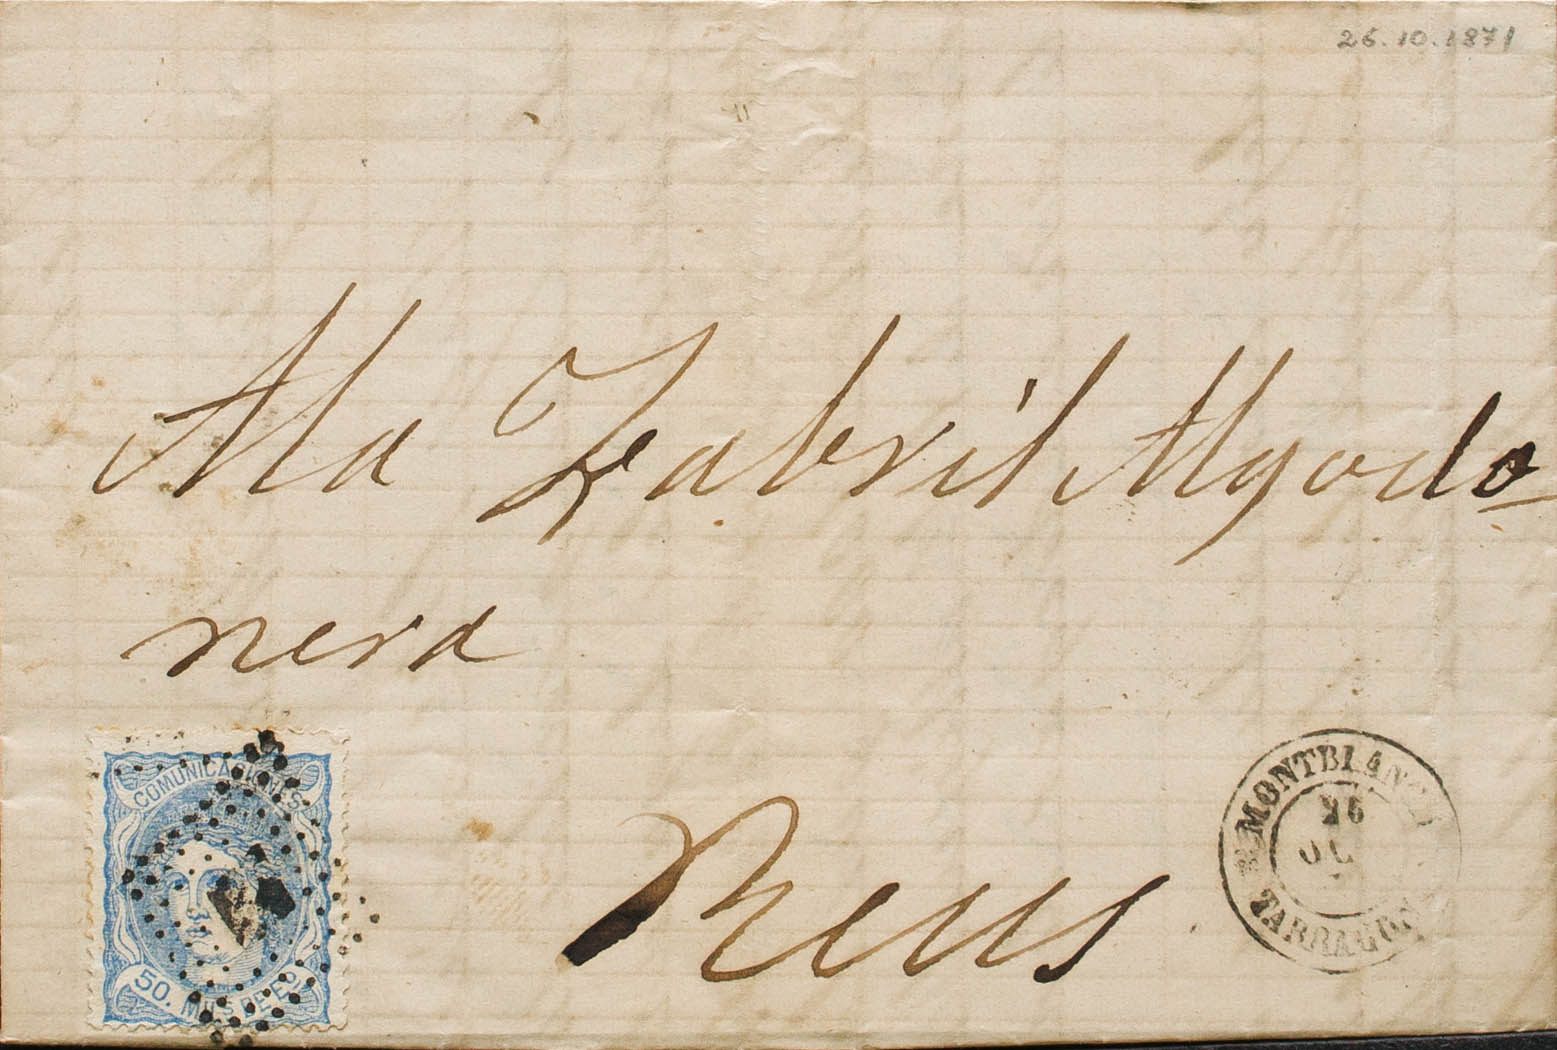 26.10.1871
Ala Fabril Algodo
nera
Reus
COMUNICACIONES
50. MILS DE E
MONTBLANCH
26
OC
TARRAGONA